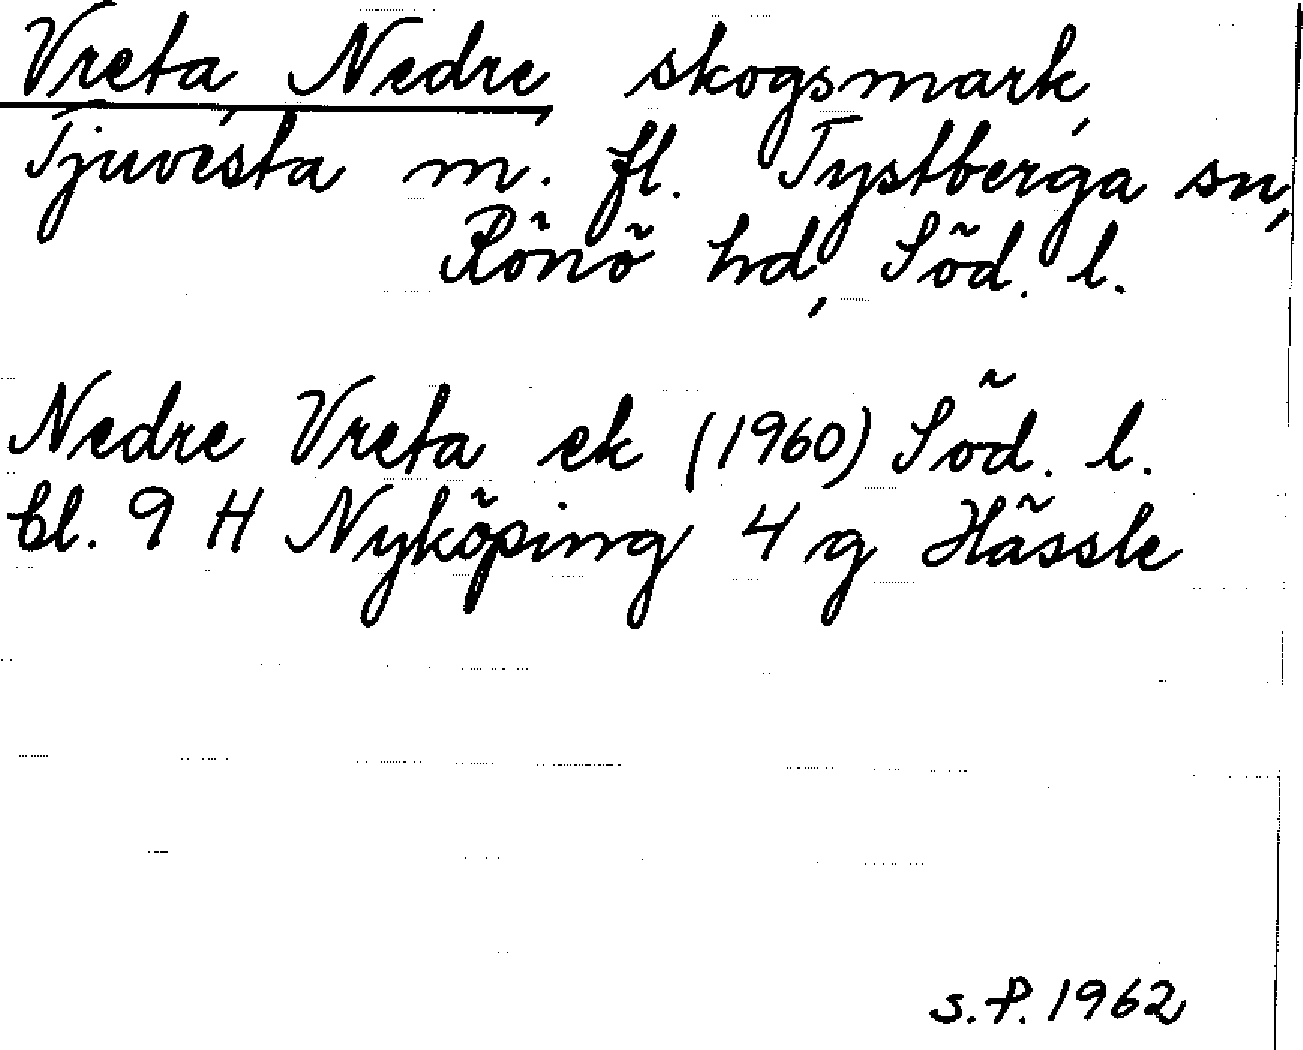 Vreta, Nedre, skogsmark,
Tjuvesta m. fl. Tystberga sn,
Rönö hd, Söd. l.
Nedre Vreta ek (1960) Söd. l.
bl. 9 H Nyköping 4 g Hässle
S.P. 1962